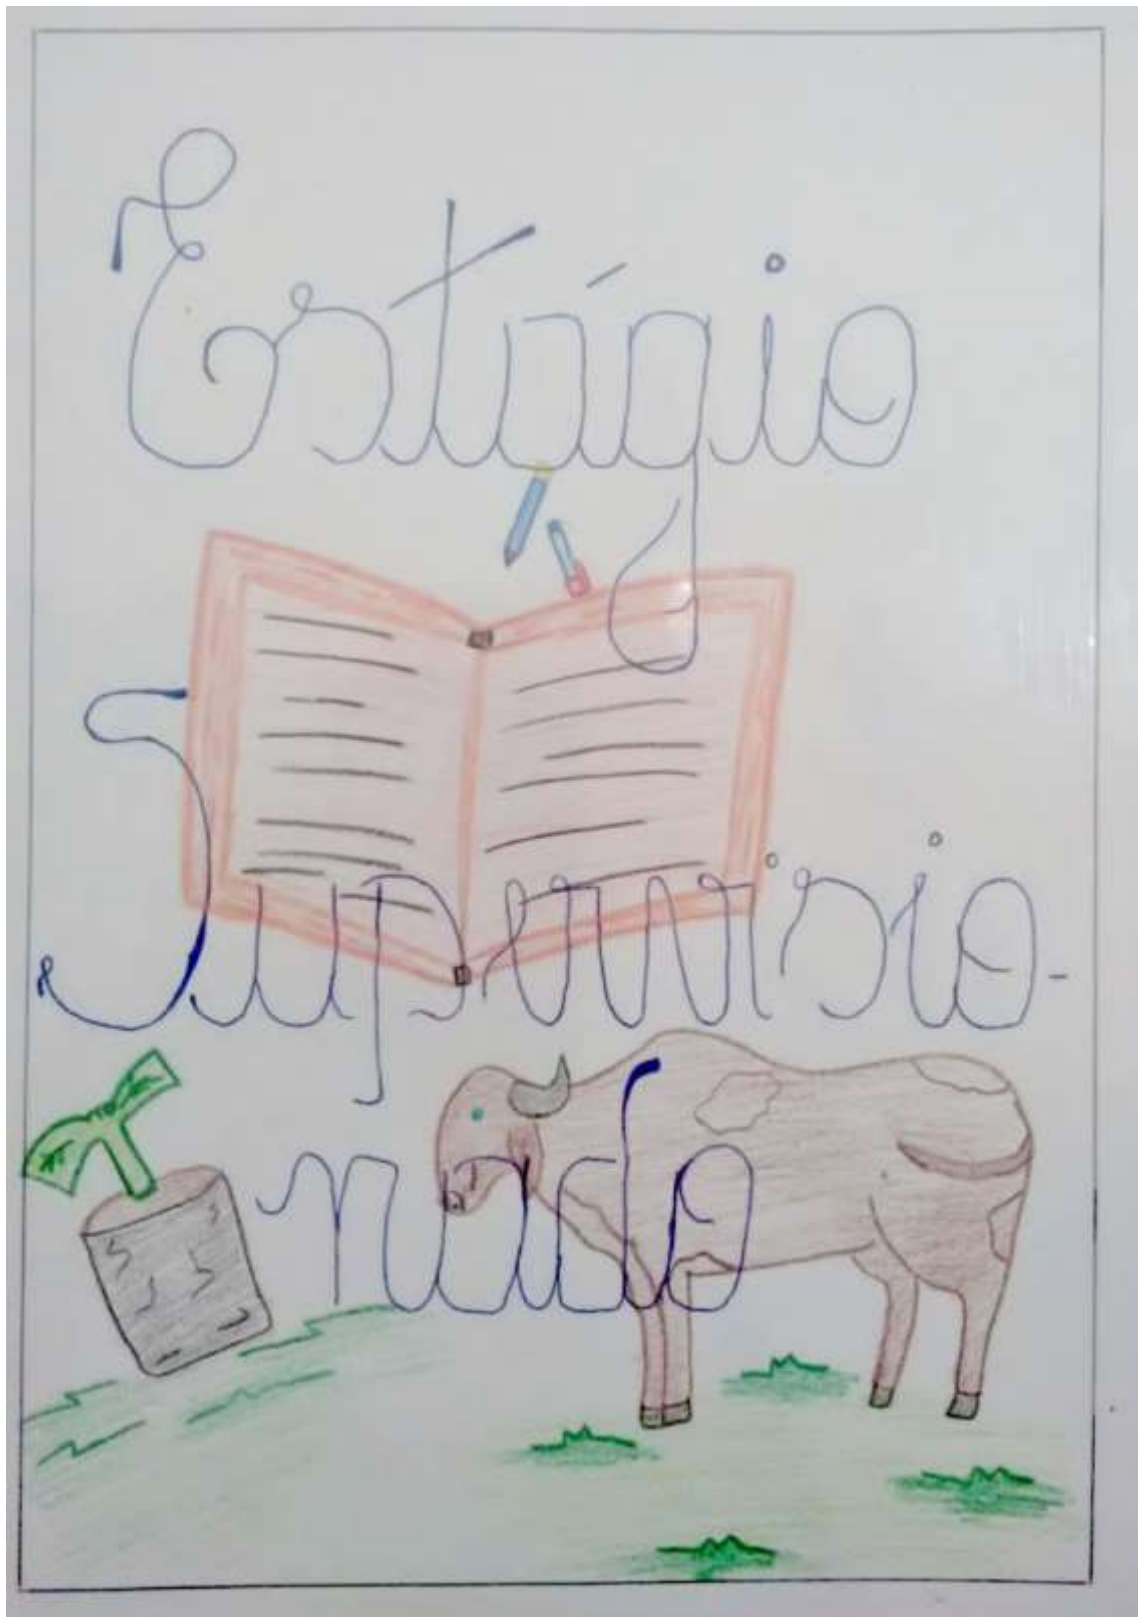 Estágio
Supervisio-
nado